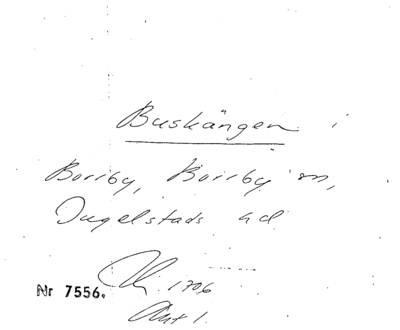 Buskängen i
Borrby, Borrby sn,
Ingelstads hd
1706
Nr 7556.
Akt 1.